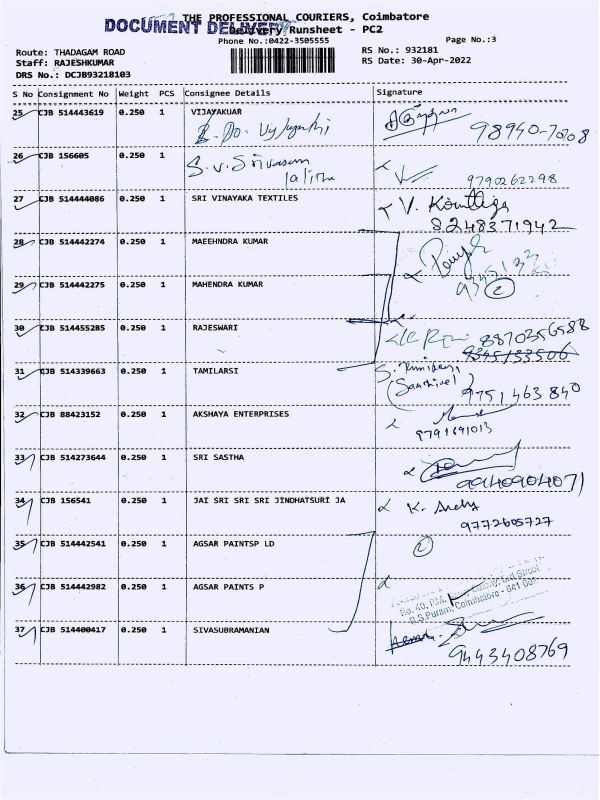 THE PROFESSIONAL COURIERS, Coimbatore
DOCUMENT DELIVERY
Delivery Runsheet - PC2
Phone No.:0422-3505555
Page No.:3
Route: THADAGAM ROAD
RS No.: 932181
Staff: RAJESHKUMAR
RS Date: 30-Apr-2022
DRS No.: DCJB93218103
S No Consignment No Weight PCS Consignee Details Signature
25 CJB 514443619 0.250 1 VIJAYAKUAR
98940-70808
26 CJB 156605 0.250 1
S.V. Srivasam
lalitha
9790262298
27 CJB 514444086 0.250 1 SRI VINAYAKA TEXTILES
V.
8248371942
28 CJB 514442274 0.250 1 MAEEHNDRA KUMAR
29 CJB 514442275 0.250 1 MAHENDRA KUMAR
2
30 CJB 514455285 0.250 1 RAJESWARI
8870356588
31 CJB 514339663 0.250 1 TAMILARSI
9751463840
32 CJB 88423152 0.250 1 AKSHAYA ENTERPRISES
9791691013
33 CJB 514273644 0.250 1 SRI SASTHA
9940904071
34 CJB 156541 0.250 1 JAI SRI SRI SRI JINDHATSURI JA
K.
9772605727
35 CJB 514442541 0.250 1 AGSAR PAINTSP LD
2
36 CJB 514442982 0.250 1 AGSAR PAINTS P
No. 40, P.M. Street
R.S.Puram, Coimbatore - 641 002
37 CJB 514400417 0.250 1 SIVASUBRAMANIAN
9443408769